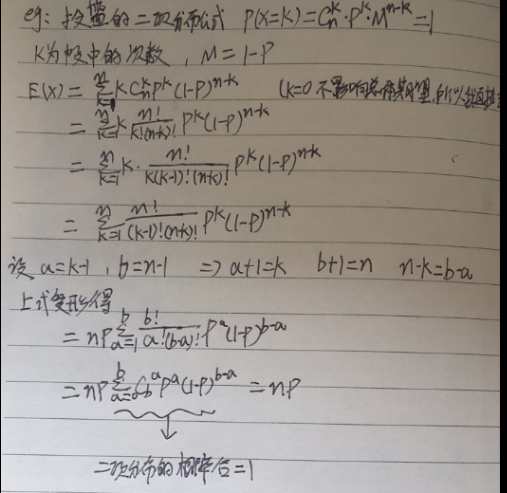 eg: 投篮的二项分布公式 P(X=K)=C_n^k·P^k·M^{n-k}=1
K为投中的次数, M=1-P
E(X)=∑_{k=1}^{n} k C_n^k P^k (1-P)^{n-k} (k=0 不影响总体期望,所以
=∑_{k=1}^{n} k \frac{n!}{k!(n-k)!} P^k (1-P)^{n-k}
=∑_{k=1}^{n} k·\frac{n!}{k(k-1)!(n-k)!} P^k (1-P)^{n-k}
=∑_{k=1}^{n} \frac{n!}{(k-1)!(n-k)!} P^k (1-P)^{n-k}
设 a=k-1, b=n-1 ⇒ a+1=k b+1=n n-k=b-a
上式变形得
=nP∑_{a=1}^{b} \frac{b!}{a!(b-a)!} P^a (1-P)^{b-a}
=nP∑_{a=0}^{b} C_b^a P^a (1-P)^{b-a}=nP
二项分布的概率合=1